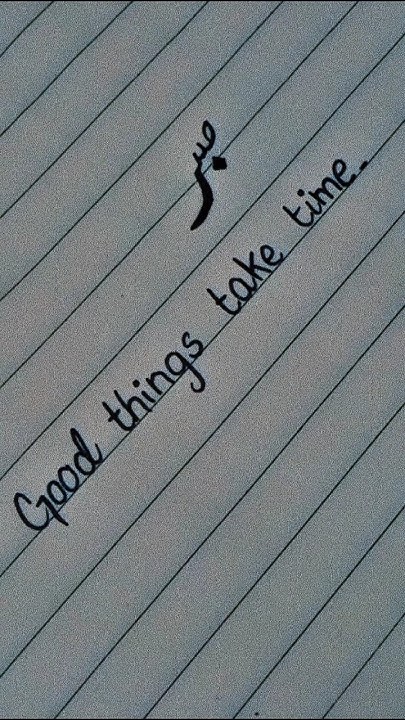 صبر
Good things take time.